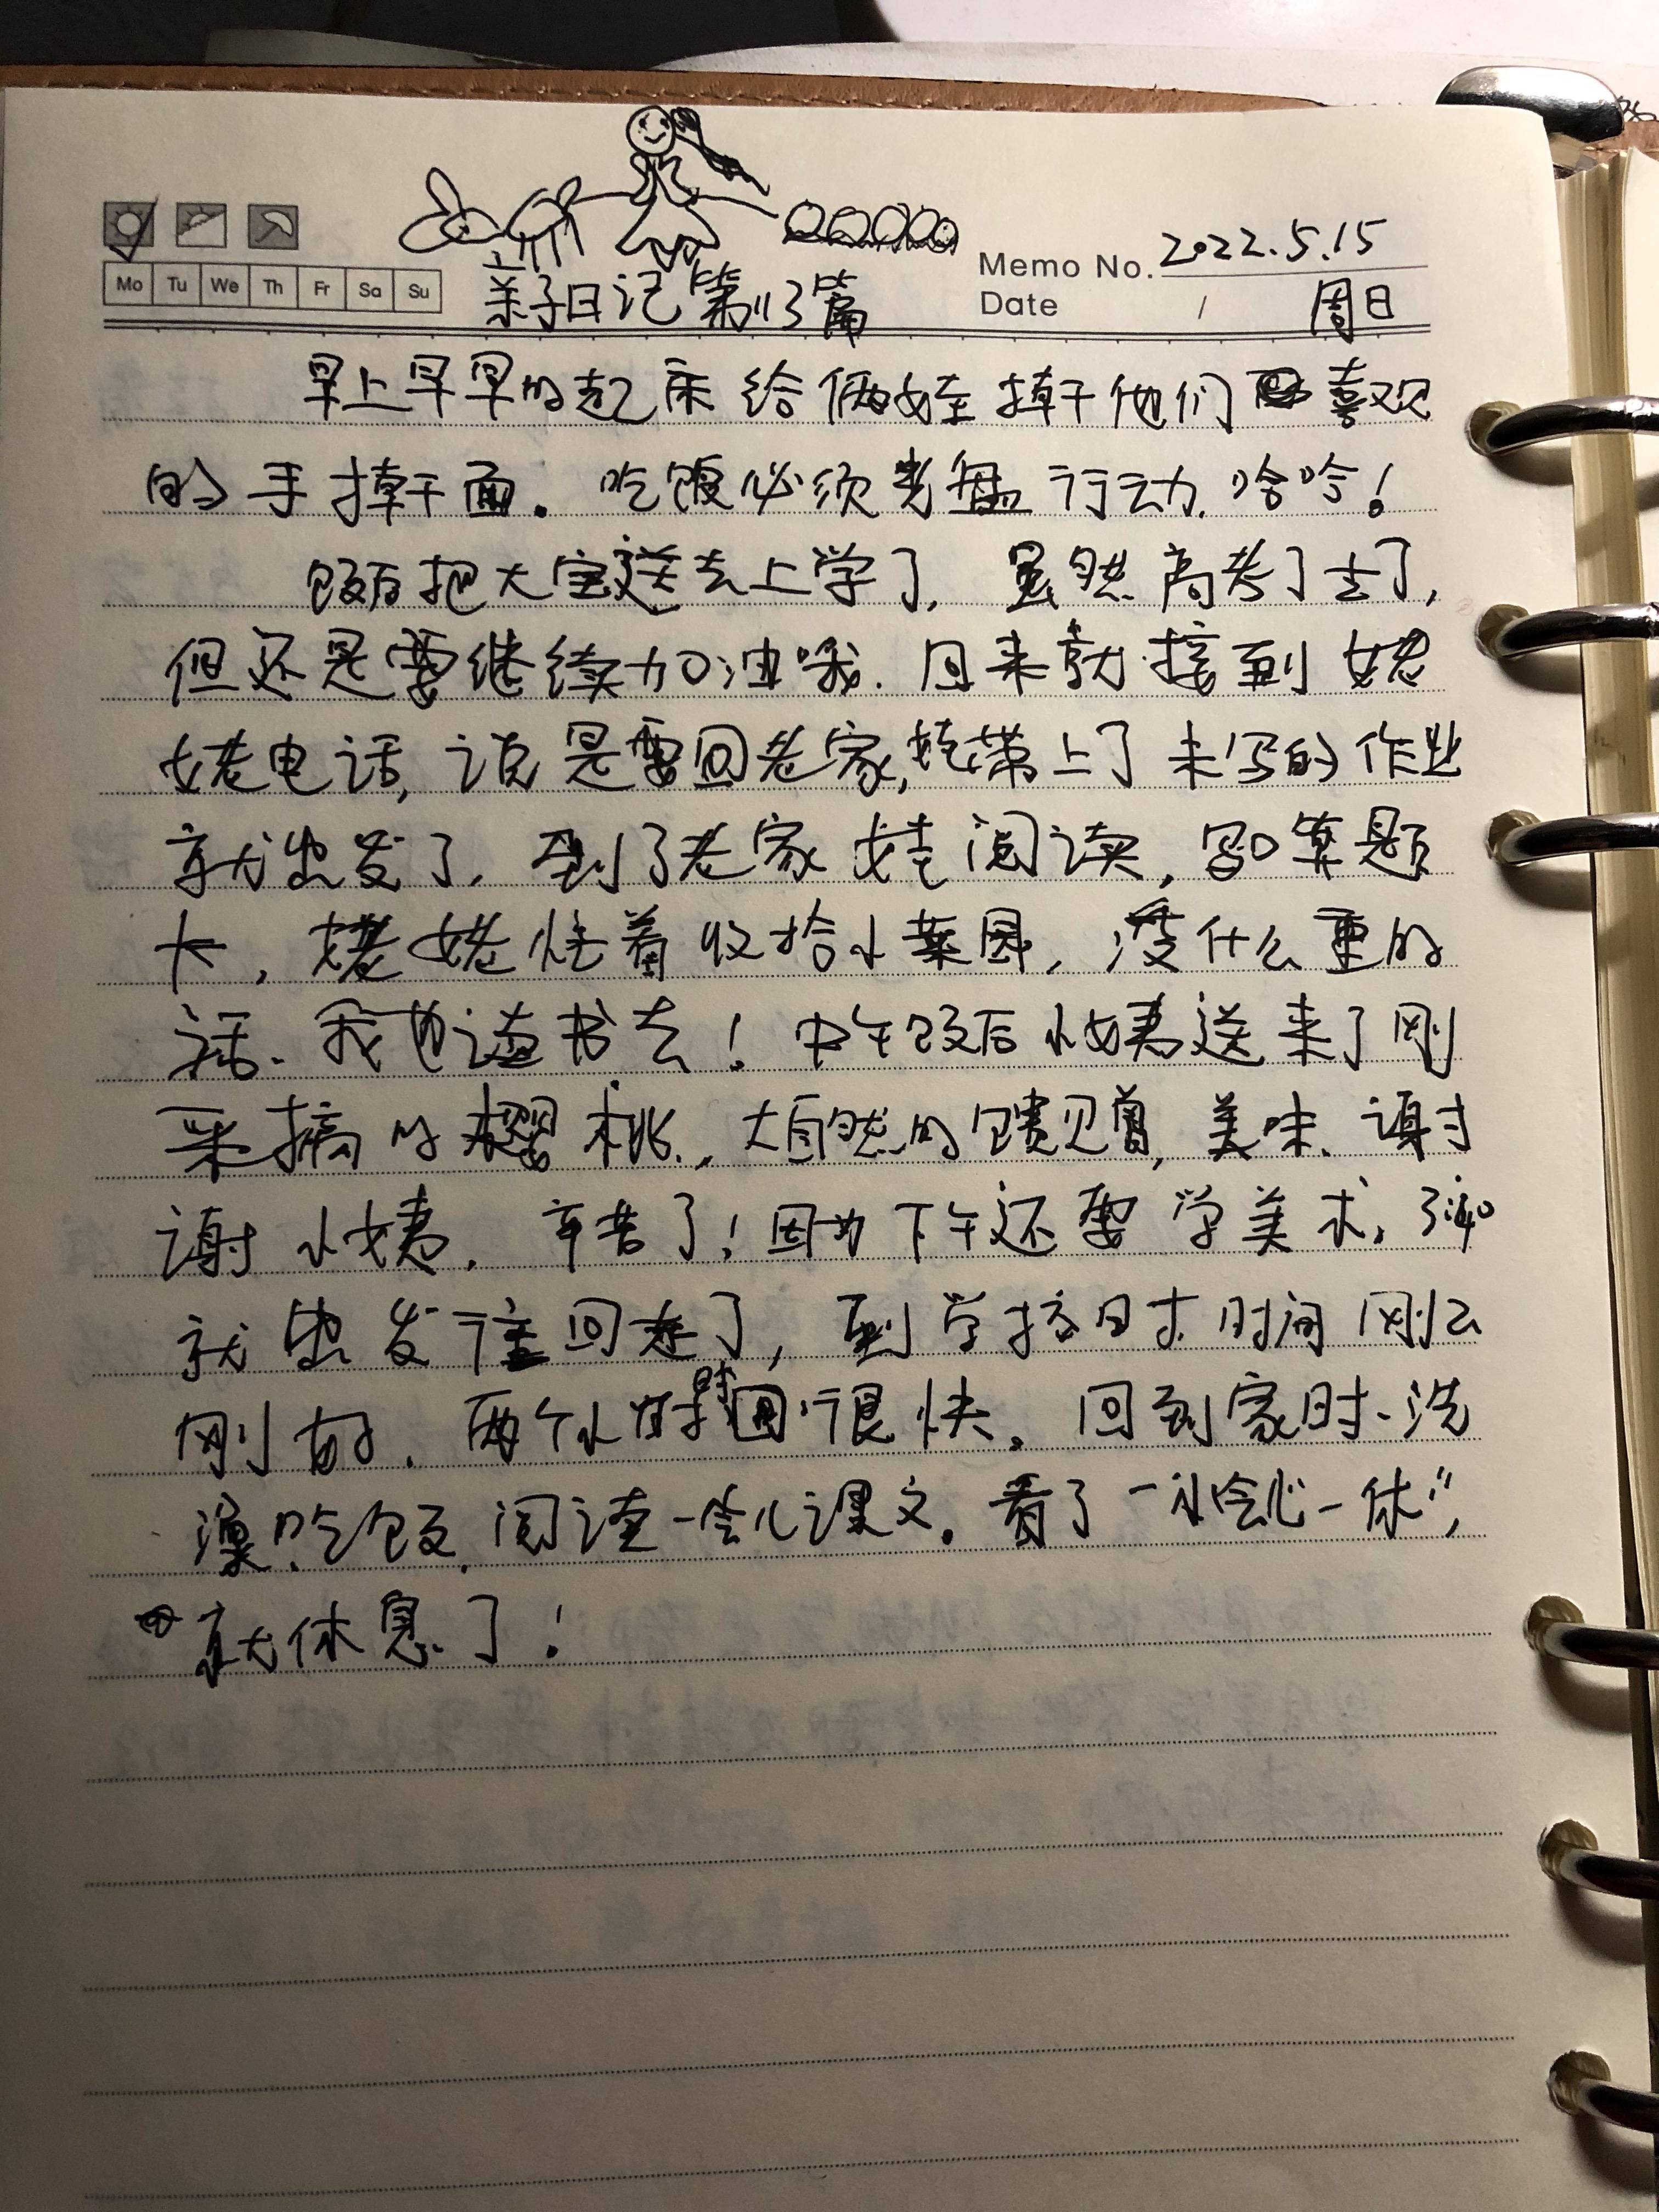 Memo No. 2022.5.15
Mo Tu We Th Fr Sa Su
亲子日记第113篇
Date / 周日
早上早早的起床给俩娃擀他们喜欢
的手擀面。吃饭必须光盘行动,哈哈!
饭后把大宝送去上学了,虽然高考了去了,
但还是要继续加油哦.回来就接到姥
姥电话,说是要回老家,娃带上了未写的作业
就出发了.到了老家娃阅读,写口算题
卡,姥姥忙着收拾小菜园,没什么重的
活.我也读书去!中午饭后小姨送来了刚
采摘的樱桃,大自然的馈赠,美味.谢
谢小姨,辛苦了!因为下午还要学美术,3:40
就出发往回走了,到学校时时间刚
刚好.两个小时很快.回到家时洗
澡吃饭,阅读一会儿课文.看了"小会一休",
就休息了!